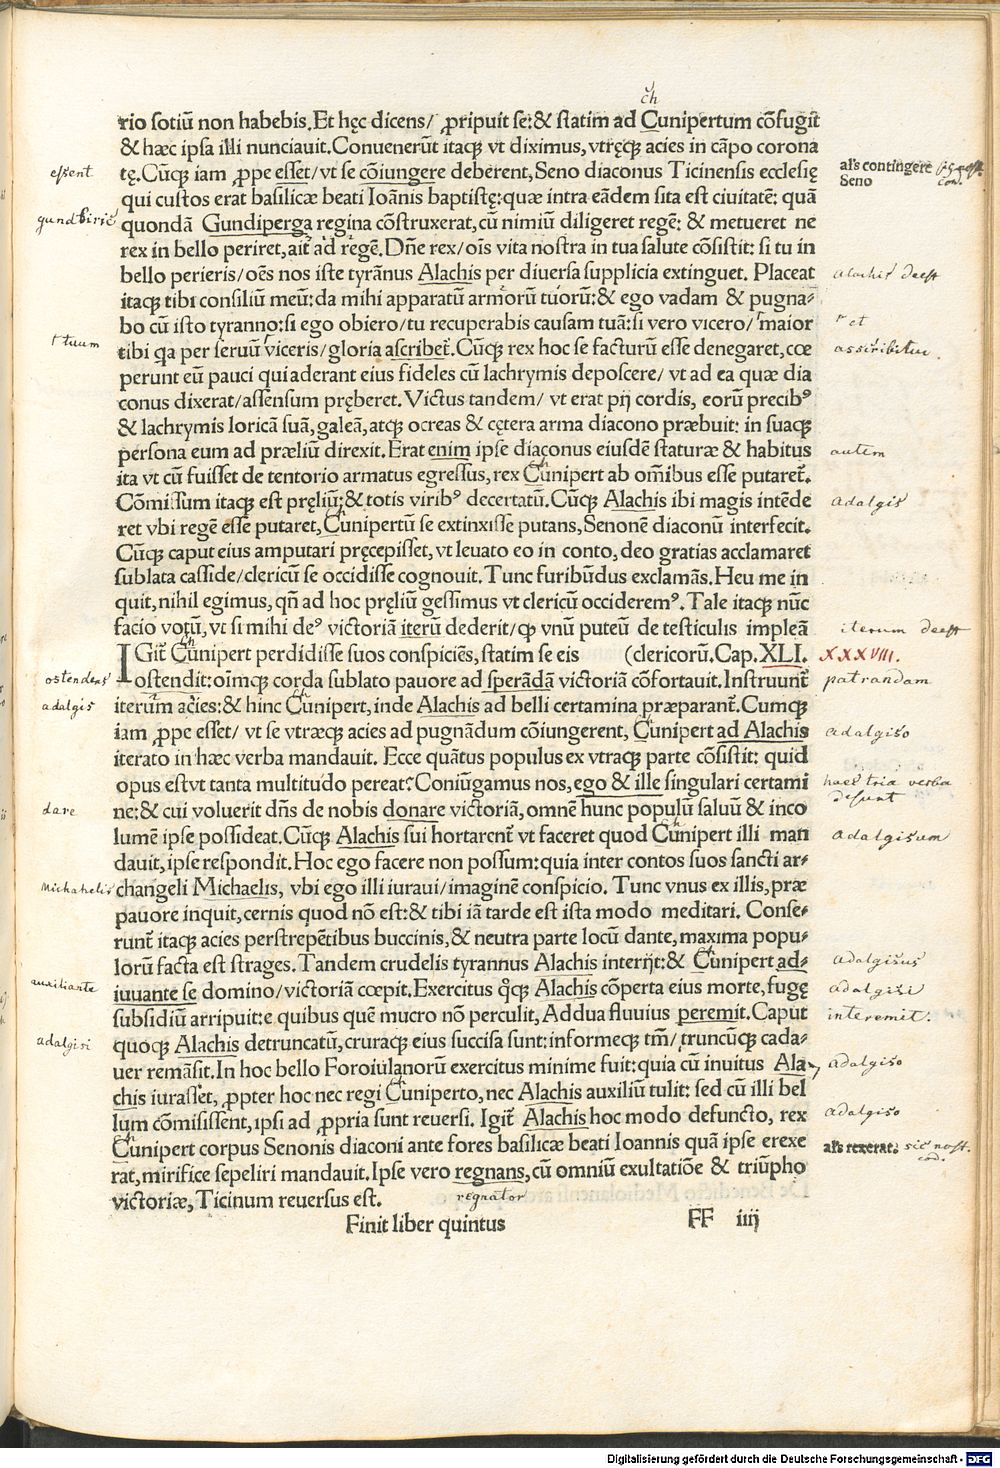 rio sotiū non habebis.Et hęc dicens/ ꝓripuit se:& statim ad Cunipertum cōfugit
& hæc ipsa illi nunciauit.Conuenerūt itaqȝ vt diximus,vtręqȝ acies in cāpo corona
tę.Cūqȝ iam ꝓpe esset/vt se cōiungere deberent,Seno diaconus Ticinensis ecclesię
qui custos erat basilicæ beati Ioānis baptistę:quæ intra eādem sita est ciuitatē: quā
quondā Gundiperga regina cōstruxerat,cū nimiū diligeret regē: & metueret ne
rex in bello periret,ait̄ ad rēgē.Dn̄e rex/oīs vita nostra in tua salute cōsistit: si tu in
bello perieris/oēs nos iste tyrānus Alachis per diuersa supplicia extinguet. Placeat
itaqȝ tibi consiliū meū:da mihi apparatū armorū tuorū:& ego vadam & pugna-
bo cū isto tyranno:si ego obiero/tu recuperabis causam tuā:si vero vicero/ maior
tibi q̄a per seruū viceris/gloria ascribet̄.Cūqȝ rex hoc se facturū esse denegaret,cœ
perunt eū pauci qui aderant eius fideles cū lachrymis deposcere/ vt ad ea quæ dia
conus dixerat/assensum pręberet.Victus tandem/ vt erat pij cordis, eorū precibꝰ
& lachrymis loricā suā,galeā,atqȝ ocreas & cętera arma diacono præbuit: in suaqȝ
persona eum ad præliū direxit.Erat enim ipse diaconus eiusdē staturæ & habitus
ita vt cū fuisset de tentorio armatus egressus,rex Cunipert ab om̄ibus esse putaret̄.
Cōmissum itaqȝ est pręliū:& totis viribꝰ decertatū.Cūqȝ Alachis ibi magis intēde
ret vbi regē esse putaret,Cunipertū se extinxisse putans,Senonē diaconū interfecit.
Cūqȝ caput eius amputari pręcepisset,vt leuato eo in conto,deo gratias acclamaret
sublata casside/clericū se occidisse cognouit.Tunc furibūdus exclamās.Heu me in
quit,nihil egimus,qn̄ ad hoc pręliū gessimus vt clericū occideremꝰ.Tale itaqȝ nūc
facio votū,vt si mihi deꝰ victoriā iterū dederit/ꝙ vnū puteū de testiculis impleā
IGit̄ Cunipert perdidisse suos conspiciēs,statim se eis (clericorū.Cap.XLI.
ostendit:oīmqȝ corda sublato pauore ad sperādā victoriā cōfortauit.Instruunt̄
iterum acies:& hinc Cunipert,inde Alachis ad belli certamina præparant̄.Cumqȝ
iam ꝓpe esset/ vt se vtræqȝ acies ad pugnādum cōiungerent,Cunipert ad Alachis
iterato in hæc verba mandauit. Ecce quātus populus ex vtraqȝ parte cōsistit: quid
opus est vt tanta multitudo pereat?Coniūgamus nos,ego & ille singulari certami
ne:& cui voluerit dn̄s de nobis donare victoriā,omnē hunc populū saluū & inco
lumē ipse possideat.Cūqȝ Alachis sui hortarent̄ vt faceret quod Cunipert illi man
dauit,ipse respondit.Hoc ego facere non possum:quia inter contos suos sancti ar-
changeli Michaelis, vbi ego illi iuraui/imaginē conspicio. Tunc vnus ex illis,præ
pauore inquit,cernis quod nō est:& tibi iā tarde est ista modo meditari. Conse-
runt̄ itaqȝ acies perstrepētibus buccinis,& neutra parte locū dante,maxima popu-
lorū facta est strages.Tandem crudelis tyrannus Alachis interijt:& Cunipert ad-
iuuante se domino/victoriā cœpit.Exercitus q̊qȝ Alachis cōperta eius morte,fugę
subsidiū arripuit:e quibus quē mucro nō perculit,Addua fluuius peremit.Caput
quoqȝ Alachis detruncatū,cruraqȝ eius succisa sunt:informeqȝ tm̄/truncūqȝ cada-
uer remāsit.In hoc bello Foroiulanorū exercitus minime fuit:quia cū inuitus Ala
chis iurasset, ꝓpter hoc nec regi Cuniperto,nec Alachis auxiliū tulit: sed cū illi bel
lum cōmisissent,ipsi ad ꝓpria sunt reuersi. Igit̄ Alachis hoc modo defuncto, rex
Cunipert corpus Senonis diaconi ante fores basilicæ beati Ioannis quā ipse erexe
rat,mirifice sepeliri mandauit.Ipse vero regnans,cū omniū exultatiōe & triūpho
victoriæ,Ticinum reuersus est.
Finit liber quintus FF iiij
essent
t tuum
ostendens
adalgis
dare
Michahelis
auxiliante
adalgisi
ch
ch
ch
ch
ch
ch
ch
regnator
als contingere
Seno
alachis deest
r et
assiribitur.
autem
adalgis
iterum deest
XXXVIII.
patrandam
adalgiso
haec tria verba
desunt
adalgisum
adalgisus
adalgisi
interemit.
adalgiso
adalgiso
als rexerat. sic nost.
cod.
Digitalisierung gefördert durch die Deutsche Forschungsgemeinschaft - DFG